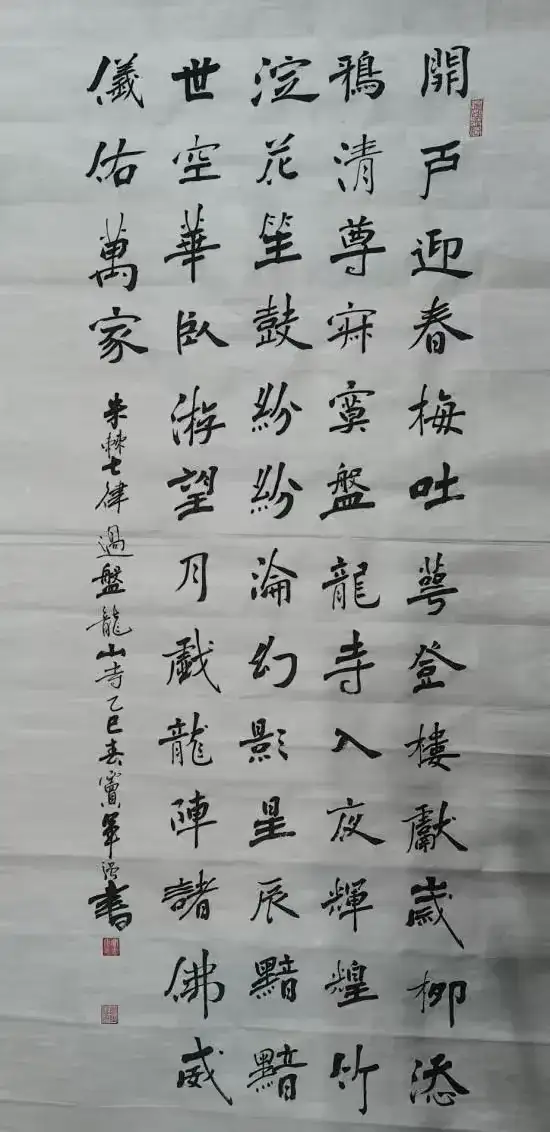 開戶迎春梅吐萼登樓獻歲柳添
鴉清尊寂寞盤龍寺入夜輝煌竹
淀花笙鼓紛紛淪幻影星辰黯黯
世空華臥游望月戲龍陣諸佛威
儀佑萬家
朱棘七律過盤龍山寺乙巳春竇軍强書